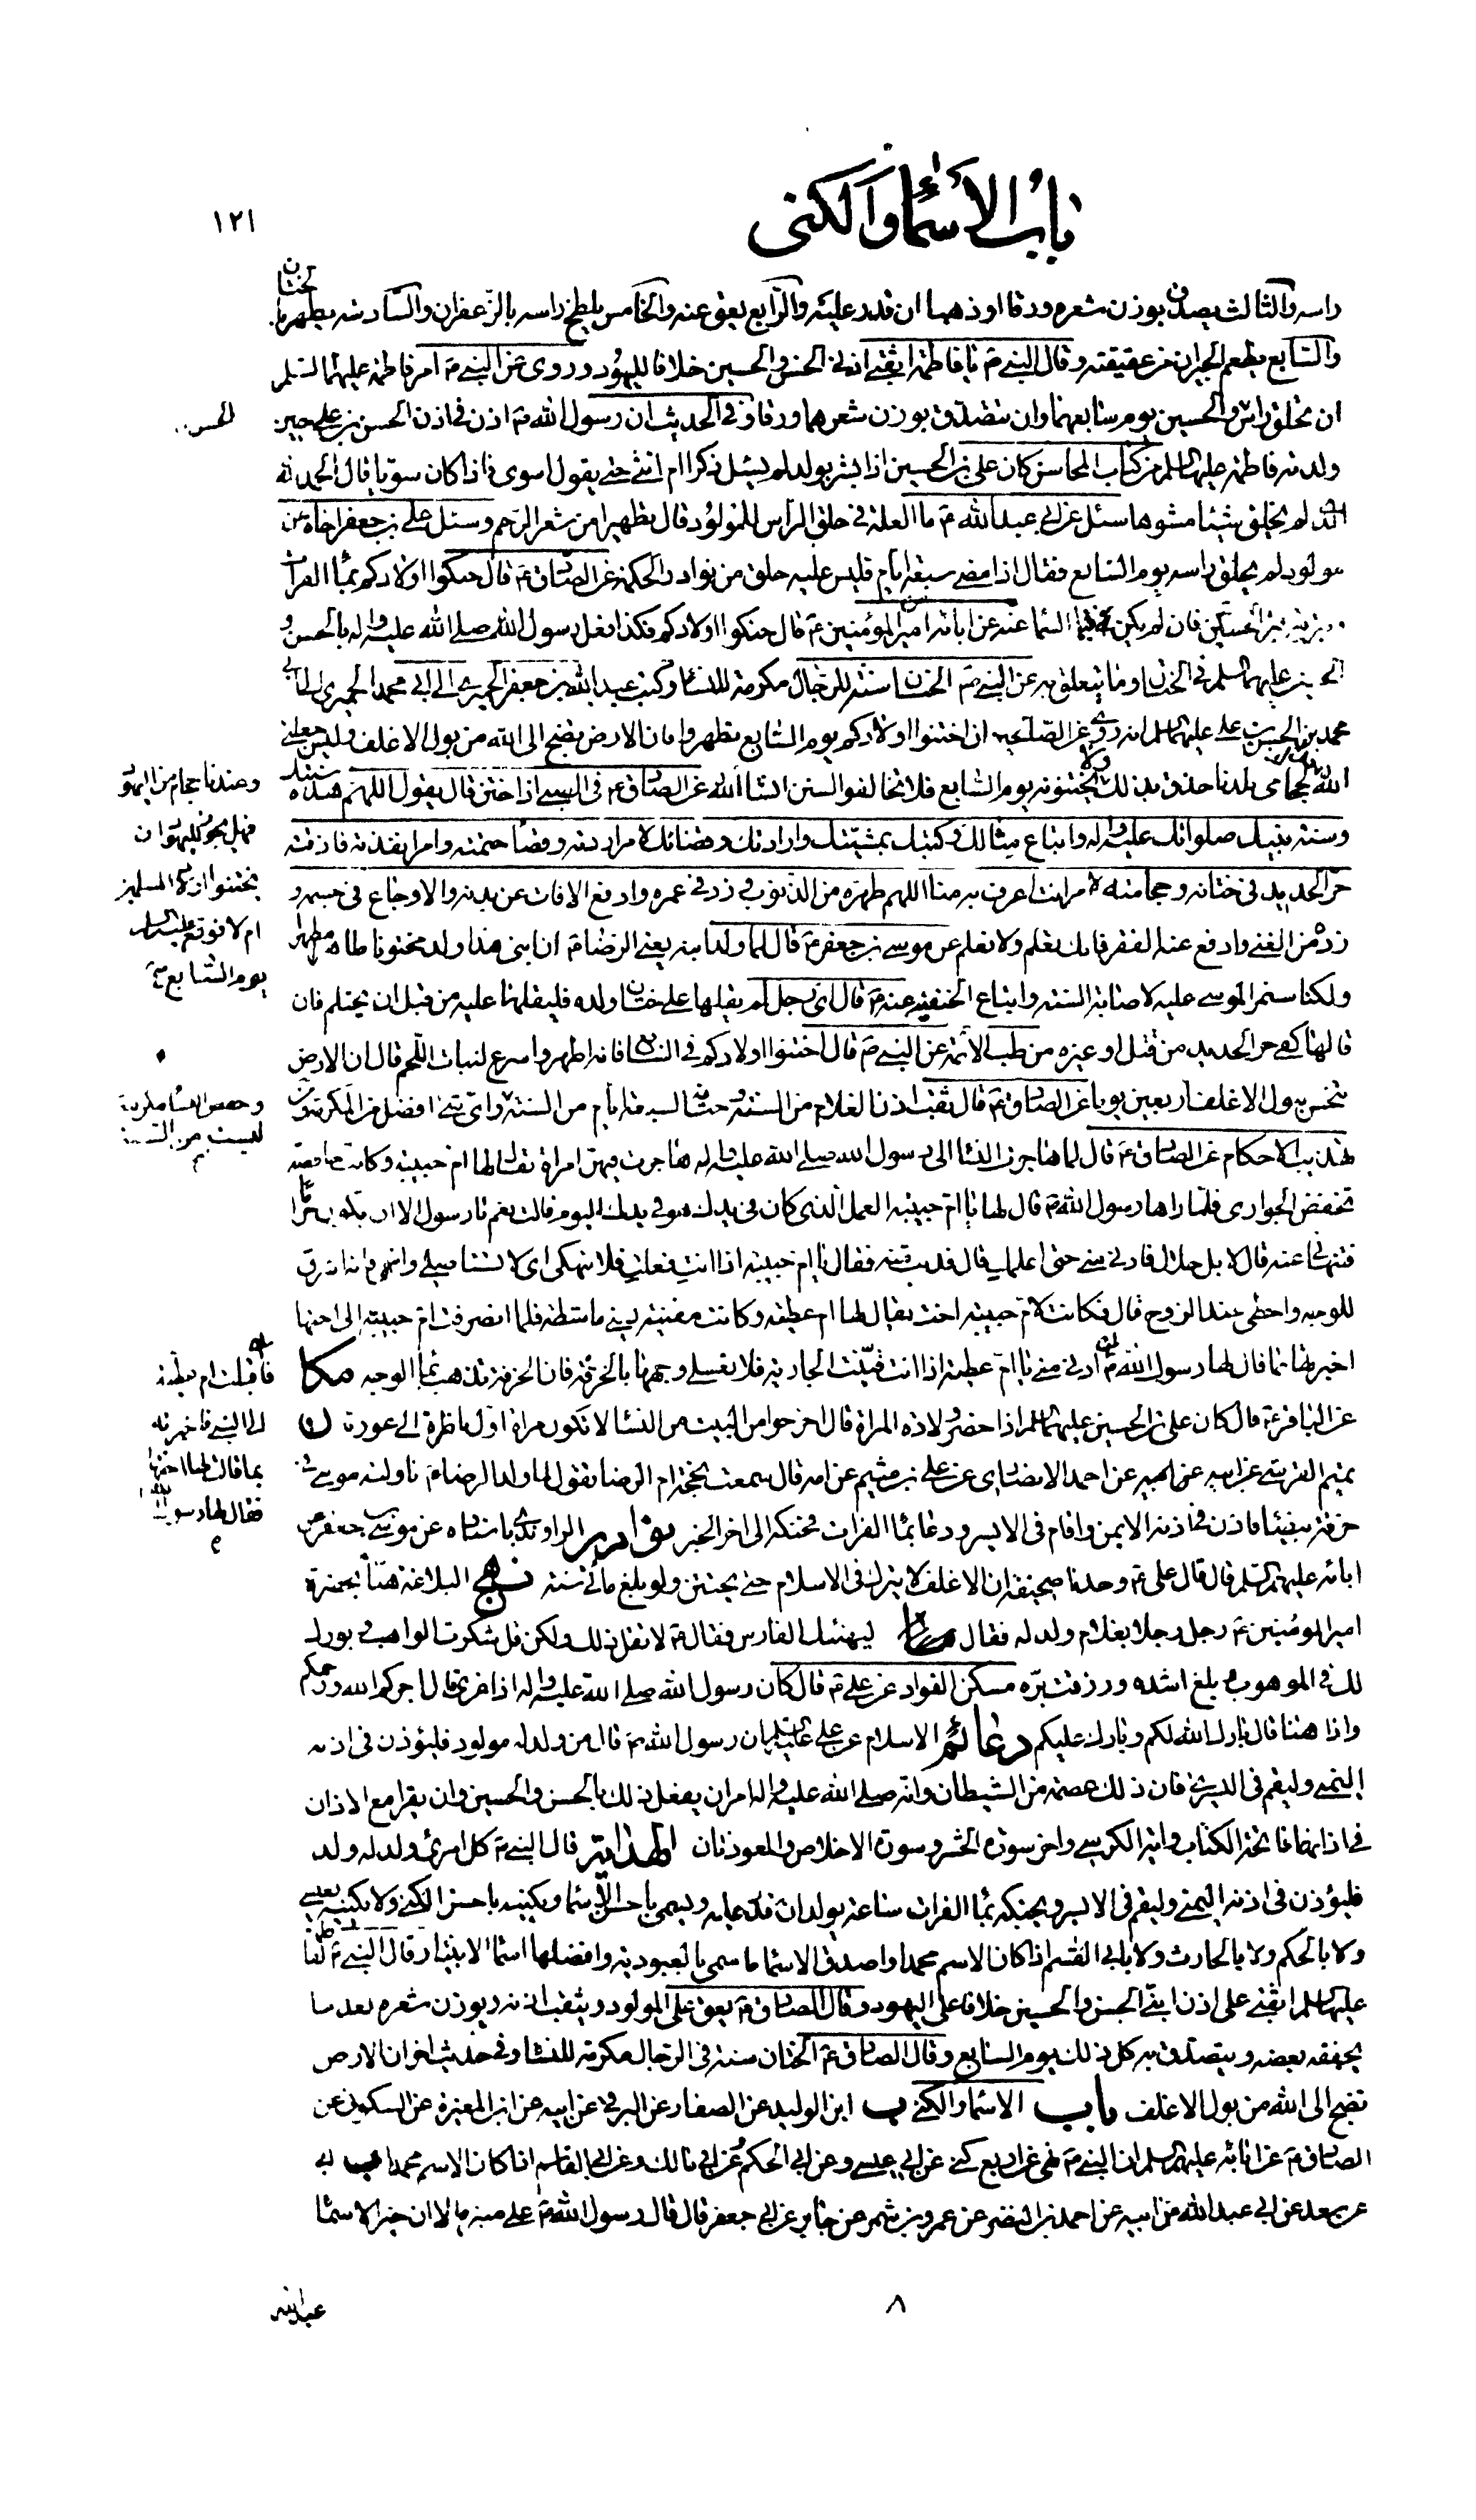 باب الأسماء والكنى
١٢١
راسه والثالث يصدق بوزن شعره ورقا او ذهبا ان قدر عليه والرابع يعق عنه والخامس يلطخ راسه بالزعفران والسادسة يطهر بالختان
والسابع يطعم الجيران من عقيقته وقال النبي ص يا فاطمة اثقبي اذني الحسن والحسين خلافا لليهود وروى عن النبي ص امر فاطمة عليها السلم
ان تحلق راس والحسين يوم سابعهما وان تتصدق بوزن شعرهما ورقا وفي الحديث ان رسول الله ص اذن في اذن الحسن بن علي حين
الحسن
ولدته فاطمة عليها السلم من كتاب المحاسن كان علي بن الحسين اذا بشر بولد لم يسئل ذكرا ام انثى حتى يقول اسوى فاذا كان سويا قال الحمد لله
الذي لم يخلق شيئا مشوها سئل عن ابي عبد الله ع ما العلة في حلق الراس للمولود قال تطهيرا من شعر الرحم وسئل علي بن جعفر اخاه عن
مولود لم يحلق راسه يوم السابع فقال اذا مضى سبعة ايام فليس عليه حلق من نوادر الحكمة عن الصادق ع قال حنكوا اولادكم بماء الفرات
وبتربة الحسين فان لم يكن فبماء السماء عنه عن ابائه امير المؤمنين ع قال حنكوا اولادكم فكذا فعل رسول الله صلى الله عليه واله بالحسن و
الحسين عليهما السلم في الختان وما يتعلق به عن النبي ص الختان سنة للرجال مكرمة للنساء وكتب عبد الله بن جعفر الحميري الى ابي محمد
محمد الحسن بن علي عليهما السلم انه روى عن الصالحين ان اختنوا اولادكم يوم السابع تطهروا فان الارض تضج الى الله من بول الاغلف وليس جعلني
الله لحجامي بلدنا حذق بذلك ولا يختنونه يوم السابع فلا تخالفوا السنن انشا الله عن الصادق ع في الصبي اذا ختن قال يقول اللهم هذه سنتك
وعندنا حجام من اليهود
فهل يجوز لليهود ان
يختنوا اولاد المسلمين
ام لا فوقع عليه السلم
يوم السابع
وسنة نبيك صلواتك عليه واله واتباع مثالك وكتبك بمشيتك وارادتك وقضائك لامر اردته وقضاء حتمته وامر انفذته فاذقته
حر الحديد في ختانه وحجامته لامر انت اعرف به منا اللهم طهره من الذنوب وزد في عمره وادفع الافات عن بدنه والاوجاع في جسمه و
زده من الغنى وادفع عنه الفقر فانك تعلم ولا نعلم عن موسى بن جعفر ع قال لما ولد ابنه يعني الرضا ع ان ابني هذا ولد مختونا طاهرا مطهرا
ولكنا سنمر الموسى عليه لاصابة السنة واتباع الحنفية عنه ع قال اي رجل لم يقلها على ختان ولده فليقلها عليه من قبل ان يحتلم فان
قالها كفي حر الحديد من قتل او غيره من طب الائمة عن النبي ص قال اختنوا اولادكم في السابع فانه اطهر واسرع لنبات اللحم قال ان الارض
تنجس ببول الاغلف اربعين يوما عن الصادق ع قال ثقب اذن الغلام من السنة وختانه لسبعة ايام من السنة
تهذيب الاحكام عن الصادق ع قال لما هاجرن النساء الى رسول الله صلى الله عليه واله هاجرت فيهن امراة يقال لها ام حبيبة وكانت خافضة
تخفض الجواري فلما راها رسول الله ص قال لها يا ام حبيبة العمل الذي كان في يدك هو في يدك اليوم قالت نعم يا رسول الله الا ان يكون حراما
فتنهانى عنه قال لا بل حلال فادني مني حتى اعلمك قال فدنت منه فقال يا ام حبيبة اذا انت فعلت فلا تنهكي اي لا تستاصلي واشمي فانه اشرق
للوجه واحظى عند الزوج قال فكانت لام حبيبة اخت يقال لها ام عطية وكانت مقنية يعني ماشطة فلما انصرفت ام حبيبة الى اختها
اخبرتها بما قال لها رسول الله ص ادني مني يا ام عطية اذا انت قينت الجارية فلا تغسلي وجهها بالخرقة فان الخرقة تذهب بماء الوجه مكا
فاقبلت ام عطية
الى النبي فاخبرته
بما قالت لها اختها
فقال لها رسول الله
عن الباقر ع قال كان علي بن الحسين عليهما السلم اذا حضر ولادة المراة قال اخرجوا من البيت من النساء لا تكون مراة اول ناظرة الى عورة
تميم القرشي عن ابيه عن احمد الانصاري عن علي بن ميثم عن امه قال سمعت نجمة ام الرضا تقول لما ولد الرضا ع ناولته موسى في
خرقة بيضاء فاذن في اذنه الايمن واقام في الايسر ودعا بماء الفرات فحنكه الى اخر الخبر نوادر الراوندي باسناده عن موسى بن جعفر عن
ابائه عليهم السلم قال قال علي ع وجدنا صحيفة ان الاغلف لا يترك في الاسلام حتى يختتن ولو بلغ مائة سنة نهج البلاغة هنأ بحضرة
امير المؤمنين ع رجل رجلا بغلام ولد له فقال ليهنئك الفارس فقال ع لا تقل ذلك ولكن قل شكرت الواهب وبورك
لك في الموهوب وبلغ اشده ورزقت بره مسكن الفواد عن علي ع قال كان رسول الله صلى الله عليه واله اذا عزى قال اجركم الله ورحمكم
واذا هنا قال بارك الله لكم وبارك عليكم دعائم الاسلام عن علي عليه السلم ان رسول الله ص قال من ولد له مولود فليؤذن في اذنه
اليمنى وليقم في اليسرى فان ذلك عصمة من الشيطان وانه صلى الله عليه واله امر ان يفعل ذلك بالحسن والحسين وان يقرا مع الاذان
في اذانهما فاتحة الكتاب واية الكرسي واخر سورة الحشر وسورة الاخلاص والمعوذتان الهداية قال النبي ص كل امرئ ولد له ولد
فليؤذن في اذنه اليمنى وليقم في الايسر ويحنكه بماء الفرات ساعة يولد ان قدر عليه ويسمي باحسن الاسماء ويكنيه باحسن الكنى ولا يكنيه بعيسى
ولا بالحكم ولا بالحارث ولا بابي القسم اذا كان الاسم محمدا واصدق الاسماء ما سمي بالعبودية وافضلها اسماء الانبياء وقال النبي ص لفاطمة
عليها السلم اثقبي على اذن ابني الحسن والحسين خلافا على اليهود وقال الصادق ع يعق على المولود ويثقب اذنه ويوزن شعره بعد ما
يجففه بعضه ويتصدق به كل ذلك يوم السابع وقال الصادق ع الختان سنة في الرجال مكرمة للنساء وفي حديث اخر ان الارض
تضج الى الله من بول الاغلف باب الاسماء والكنى ب ابن الوليد عن الصفار عن البرقي عن ابيه عن ابن المغيرة عن السكوني عن
الصادق ع عن ابائه عليهم السلم ان النبي ص نهى عن اربع كنى عن ابي عيسى وعن ابي الحكم وعن ابي مالك وعن ابي القاسم اذا كان الاسم محمدا
عن سعد عن ابي عبد الله عن ابيه عن احمد بن النضر عن عمرو بن شمر عن جابر عن ابي جعفر قال قال رسول الله ص على منبره الا ان خير الاسماء
٨
عبد الله